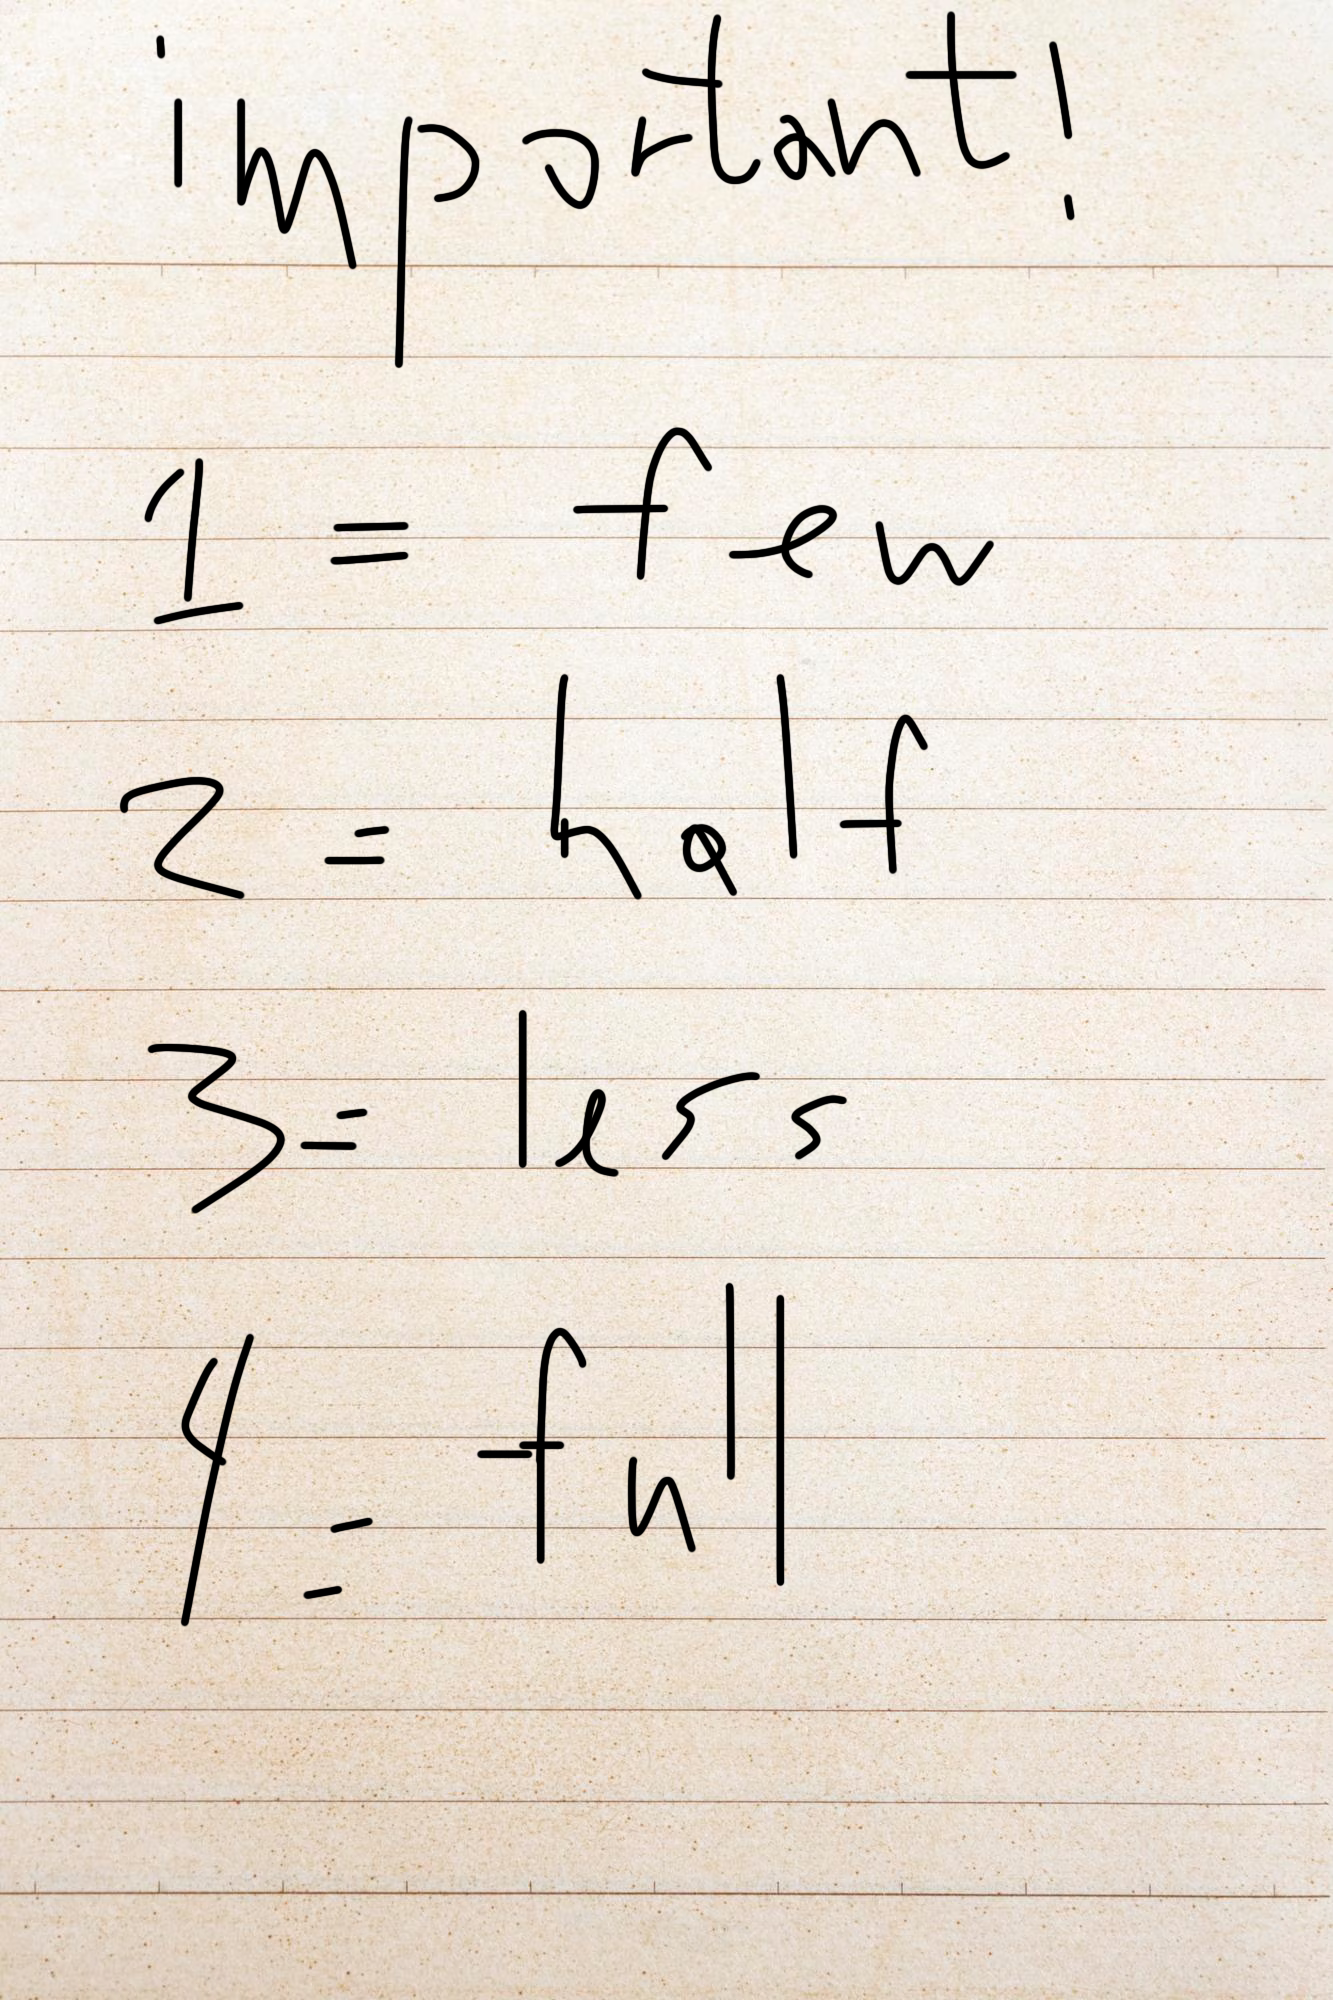 important!
1 = few
2 = half
3 = less
4 = full